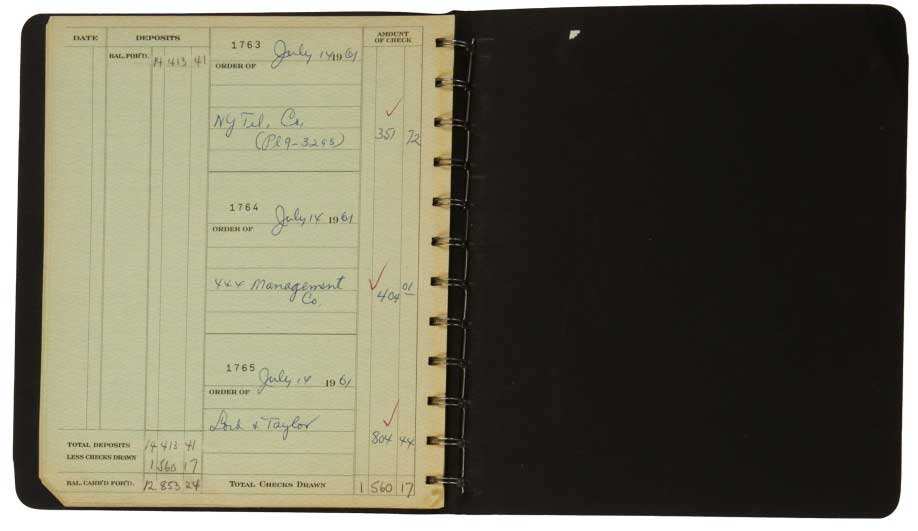 DATE DEPOSITS AMOUNT OF CHECK
BAL. FOR'D. 14 413 41
1763 July 14 1961
ORDER OF
NY Tel. Co. 351 72
(Pl 9-3295)
1764 July 14 1961
ORDER OF
444 Management 404 01
Co.
1765 July 14 1961
ORDER OF
Lord & Taylor 804 44
TOTAL DEPOSITS 14 413 41
LESS CHECKS DRAWN 1 560 17
BAL. CAR'D FOR'D. 12 853 24 TOTAL CHECKS DRAWN 1 560 17